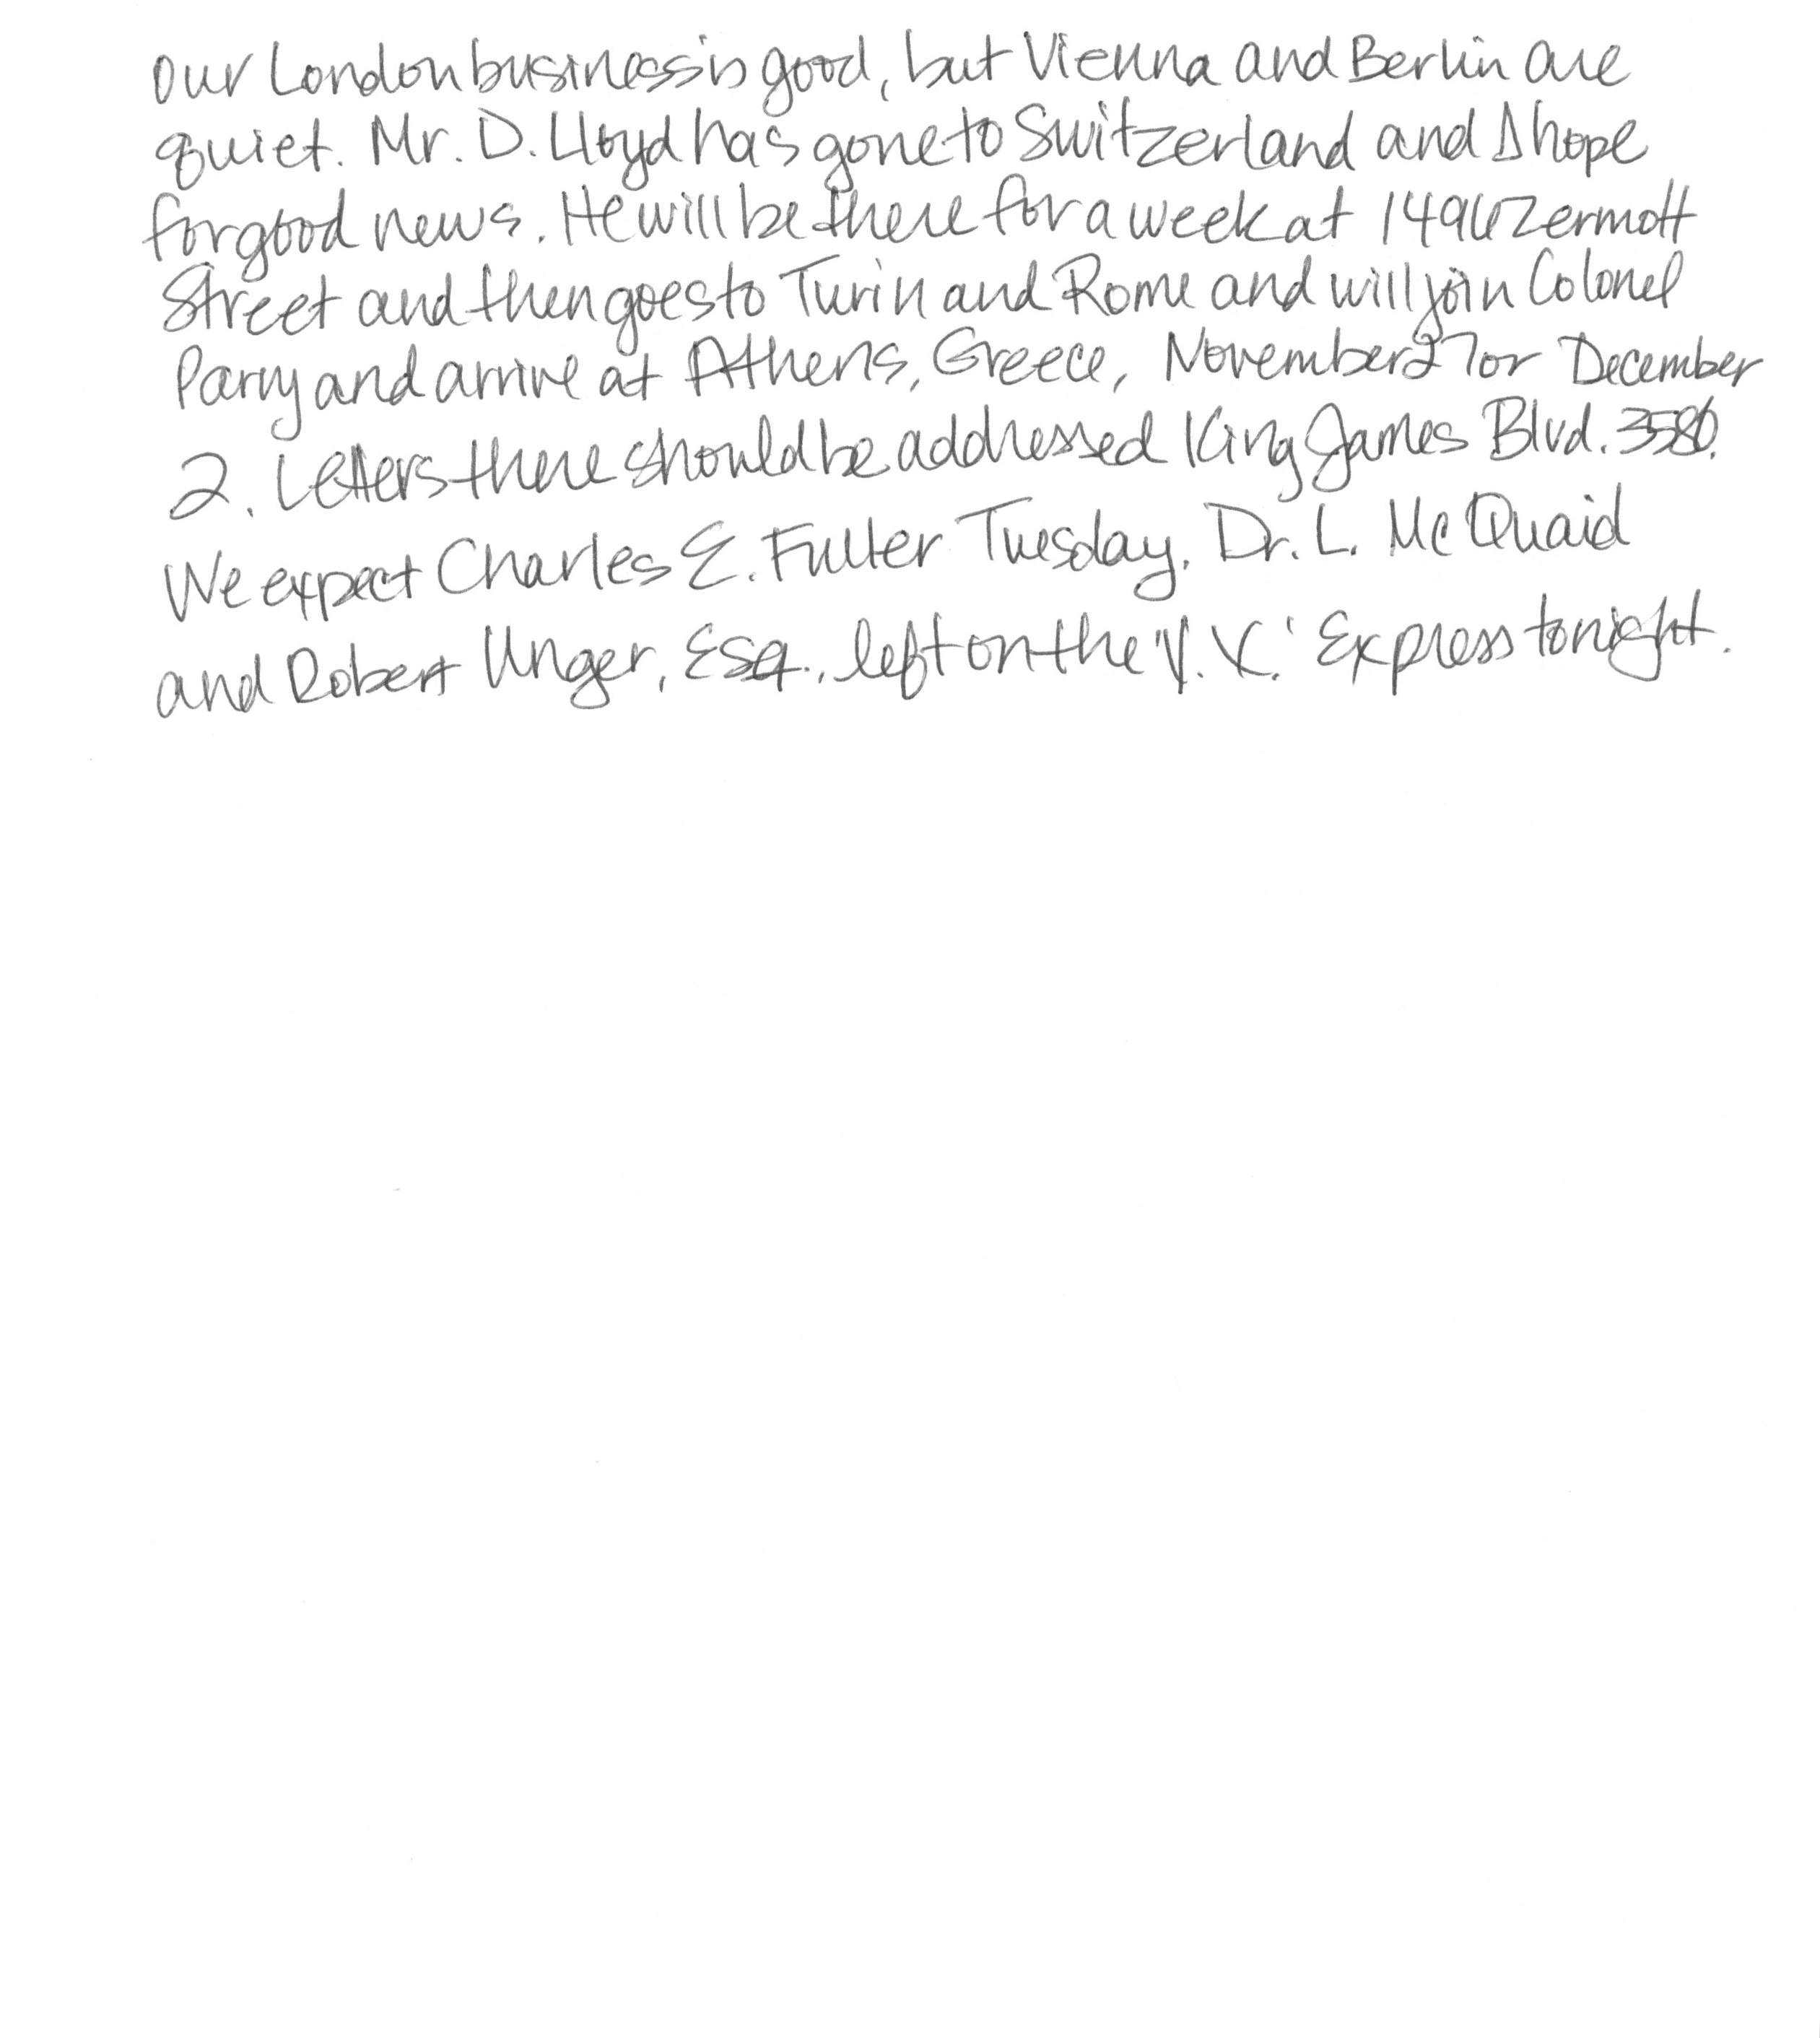 Our London business is good, but Vienna and Berlin are
quiet. Mr. D. Lloyd has gone to Switzerland and I hope
for good news. He will be there for a week at 1496 Zermott
Street and then goes to Turin and Rome and will join Colonel
Parry and arrive at Athens, Greece, November 27 or December
2. Letters there should be addressed King James Blvd. 3580.
We expect Charles E. Fuller Tuesday. Dr. L. McQuaid
and Robert Unger, Esq., left on the 'Y. X.' Express tonight.